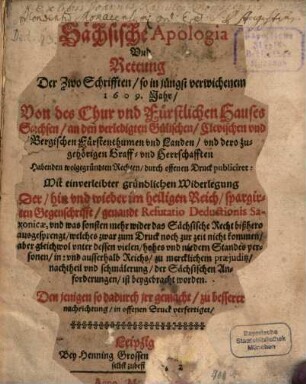 Sächsische Apologia
Und
Rettung
Der Zwo Schrifften / so in jüngst verwichenem
1609. Jahr /
Von des Chur und Fürstlichen Hauses
Sachsen / an den verledigten Gülischen / Clevischen und
Bergischen Fürstenthumen und Landen / und dero zu-
gehörigen Graff- und Herrschafften
Habenden wolgegründten Rechten / durch offenen Druck publiciret:
Mit einverleibter gründlichen Widerlegung
Der / hin und wieder im heiligen Reich / spargir-
ten Gegenschrifft / genandt Refutatio Deductionis Sa-
xonicæ, und was sonsten mehr wider das Sächsische Recht bißhero
außgesprengt / welches zwar zum Druck noch zur zeit nicht kommen /
aber gleichwol unter dessen vielen / hohes und niedern Standes per-
sonen / in: und ausserhalb Reichs / zu mercklichem præjuditz /
nachtheil und schmälerung / der Sächsischen An-
forderungen / ist beygebracht worden.
Den jenigen so dadurch irr gemacht / zu besserer
nachrichtung / in offenen Druck verfertiget /
Leipzig
Bey Henning Grossen
Bayerische
Staatsbibliothek
München